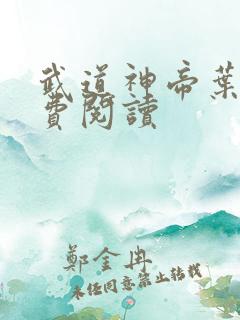 武道神帝葉
費閱讀
鄭金冉
未經同意禁止轉載